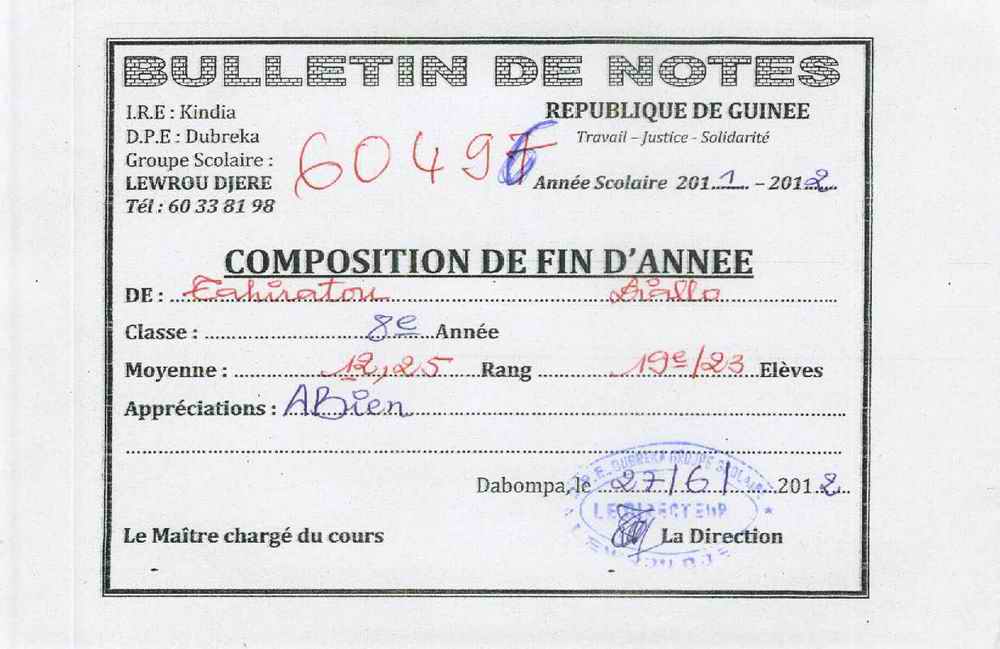 BULLETIN DE NOTES
I.R.E : Kindia
D.P.E : Dubreka
Groupe Scolaire :
LEWROU DJERE
Tél : 60 33 81 98
REPUBLIQUE DE GUINEE
Travail – Justice - Solidarité
6049
Année Scolaire 2011 – 2012
COMPOSITION DE FIN D'ANNEE
DE : Tahiratou Diallo
Classe : 8e Année
Moyenne : 12,25 Rang 19e/23 Elèves
Appréciations : ABien
Dabompa, le 27/6/2012
DUBREKA GROUPE SCOLAIRE
LE DIRECTEUR
Le Maître chargé du cours La Direction